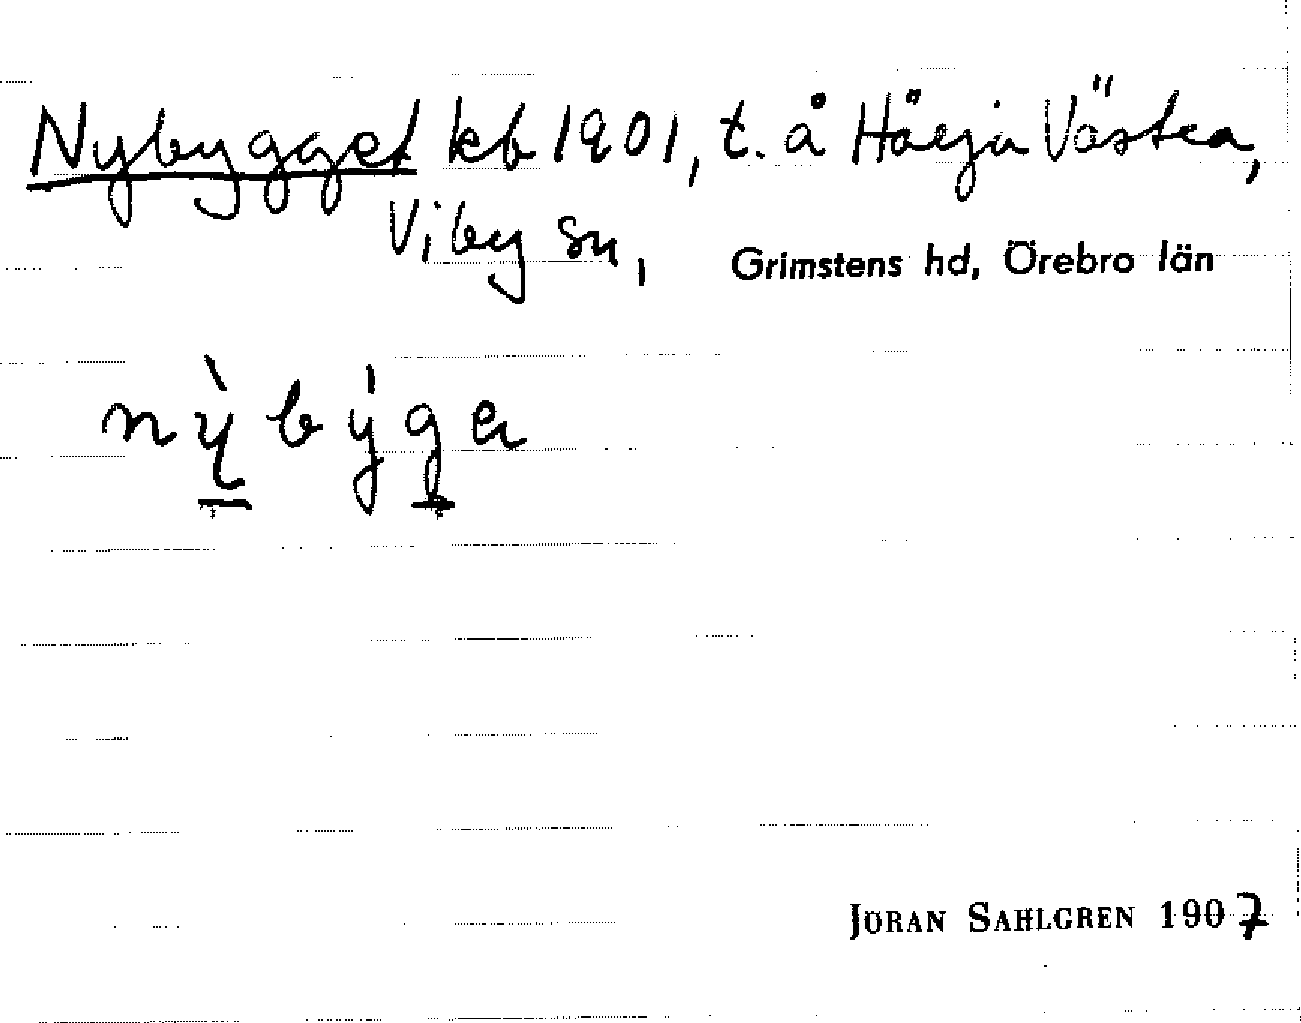 Nybygget kb 1901, t. å Håeja Västra,
Viby sn, Grimstens hd, Örebro län
JÖRAN SAHLGREN 1907